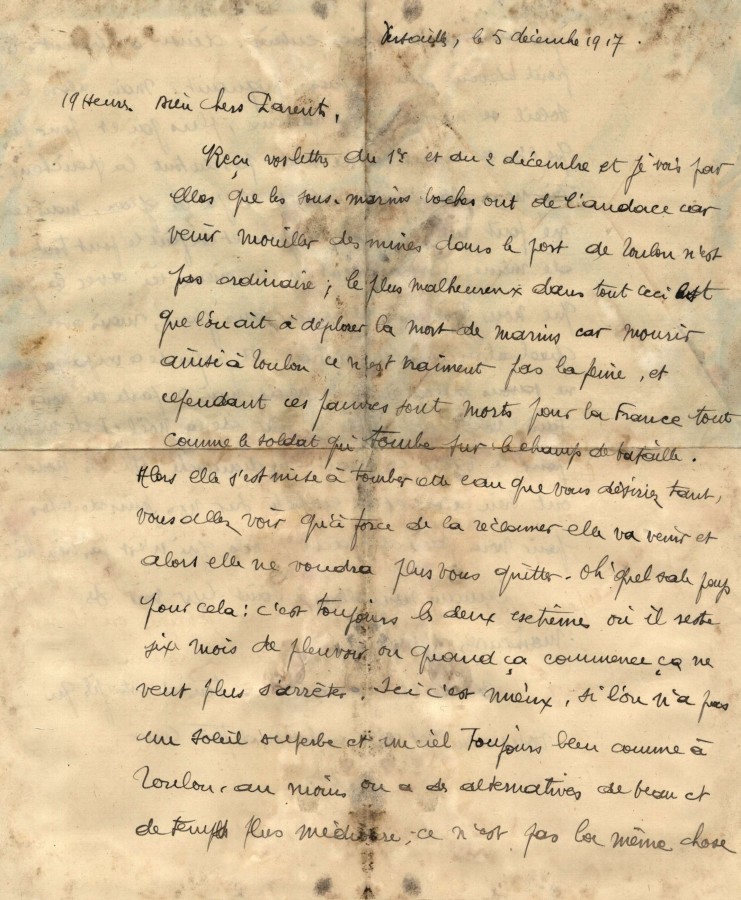 Versailles, le 5 décembre 1917.
19 Heures. Bien chers Parents,
Reçu vos lettres du 1er et du 2 décembre et je vois par
elles que les sous-marins boches ont de l'audace car
venir mouiller des mines dans le port de Toulon n'est
pas ordinaire; le plus malheureux dans tout ceci est
que l'on ait à déplorer la mort de marins car mourir
ainsi à Toulon ce n'est vraiment pas la peine, et
cependant ces pauvres sont morts pour la France tout
comme le soldat qui tombe sur le champ de bataille.
Alors elle s'est mise à tomber cette eau que vous désiriez tant,
vous allez voir qu'à force de la réclamer elle va venir et
alors elle ne voudra plus vous quitter. Oh! quel sale pays
pour cela: c'est toujours les deux extrêmes où il reste
six mois de pleuvoir ou quand ça commence ça ne
veut plus s'arrêter. Ici c'est mieux, si l'on n'a pas
un soleil superbe et un ciel toujours bleu comme à
Toulon, au moins on a des alternatives de beau et
de temps plus médiocre; ce n'est pas la même chose